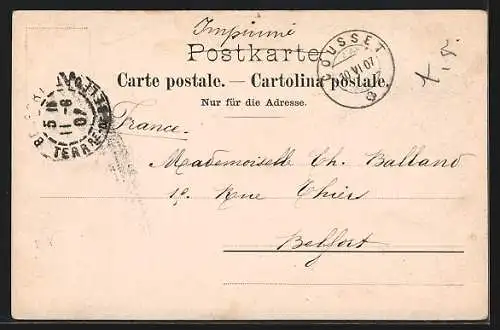 Imprimé
Postkarte
COUSSET
10 VI 07
Carte postale. — Cartolina postale.
Nur für die Adresse.
5
11 -6
07
France.
Mademoiselle Ch. Balland
12 Rue Thiers
Belfort